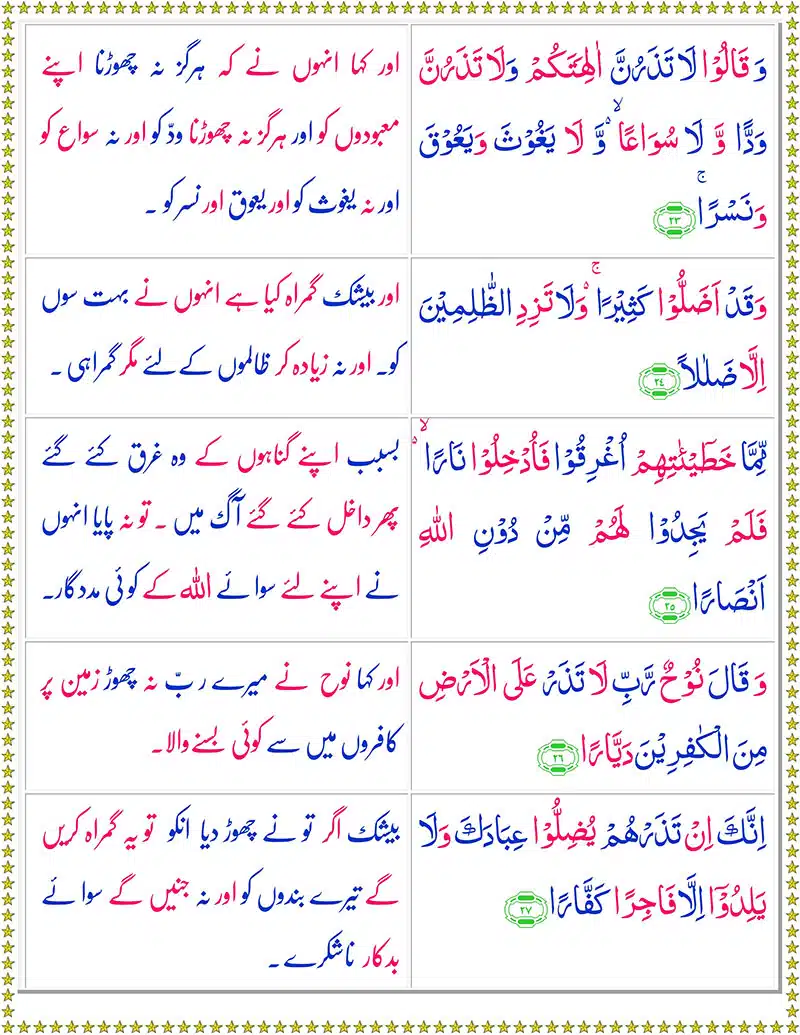 وَ قَالُوْا لَا تَذَرُنَّ اٰلِهَتَكُمْ وَلَا تَذَرُنَّ
وَدًّا وَّ لَا سُوَاعًا ۙ۬ وَّ لَا يَغُوْثَ وَيَعُوْقَ
وَنَسْرًا ۚ ۲۳
اور کہا انہوں نے کہ ہرگز نہ چھوڑنا اپنے
معبودوں کو اور ہرگز نہ چھوڑنا ودّ کو اور نہ سواع کو
اور نہ یغوث کو اور یعوق اور نسر کو ۔
وَقَدْ اَضَلُّوْا كَثِيْرًا ۚ۬ وَلَا تَزِدِ الظّٰلِمِيْنَ
اِلَّا ضَلٰلاً ۲٤
اور بیشک گمراہ کیا ہے انہوں نے بہت سوں
کو۔ اور نہ زیادہ کر ظالموں کے لئے مگر گمراہی ۔
مِّمَّا خَطِيْٓـٰٔتِهِمْ اُغْرِقُوْا فَاُدْخِلُوْا نَارًا ۙ۬
فَلَمْ يَجِدُوْا لَهُمْ مِّنْ دُوْنِ اللّٰهِ
اَنْصَارًا ۲٥
بسبب اپنے گناہوں کے وہ غرق کئے گئے
پھر داخل کئے گئے آگ میں ۔ تو نہ پایا انہوں
نے اپنے لئے سوائے اللہ کے کوئی مددگار۔
وَ قَالَ نُوْحٌ رَّبِّ لَا تَذَرْ عَلَى الْاَرْضِ
مِنَ الْكٰفِرِيْنَ دَيَّارًا ۲٦
اور کہا نوح نے میرے ربّ نہ چھوڑ زمین پر
کافروں میں سے کوئی بسنے والا۔
اِنَّكَ اِنْ تَذَرْهُمْ يُضِلُّوْا عِبَادَكَ وَلَا
يَلِدُوْٓا اِلَّا فَاجِرًا كَفَّارًا ۲۷
بیشک اگر تو نے چھوڑ دیا انکو تو یہ گمراہ کریں
گے تیرے بندوں کو اور نہ جنیں گے سوائے
بدکار ناشکرے ۔